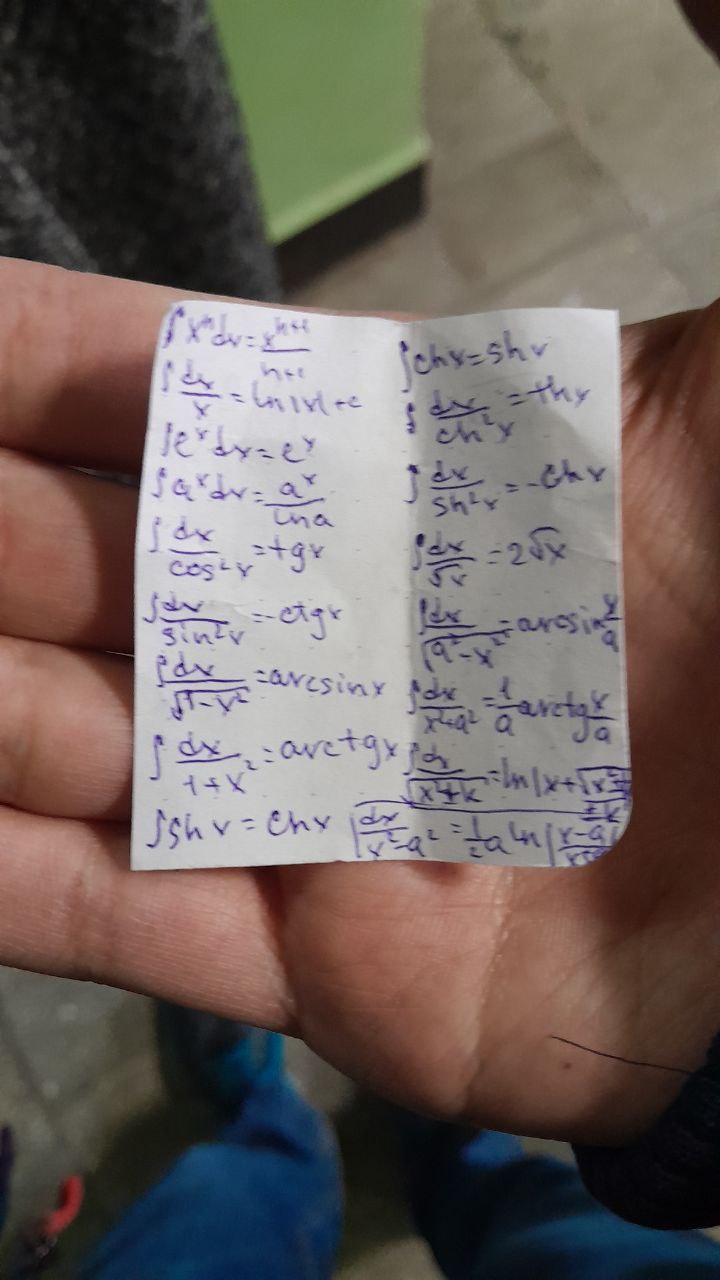 ∫xⁿdx = xⁿ⁺¹/n+1
∫dx/x = ln|x|+c
∫eˣdx = eˣ
∫aˣdx = aˣ/lna
∫dx/cos²x = tgx
∫dx/sin²x = -ctgx
∫dx/√1-x² = arcsinx
∫dx/1+x² = arctgx
∫shx = chx
∫chx = shx
∫dx/ch²x = thx
∫dx/sh²x = -chx
∫dx/√x = 2√x
∫dx/√a²-x² = arcsin x/a
∫dx/x²+a² = 1/a arctg x/a
∫dx/√x²+k = ln|x+√x²+k
∫dx/x²-a² = 1/2a ln|x-a/x+a|